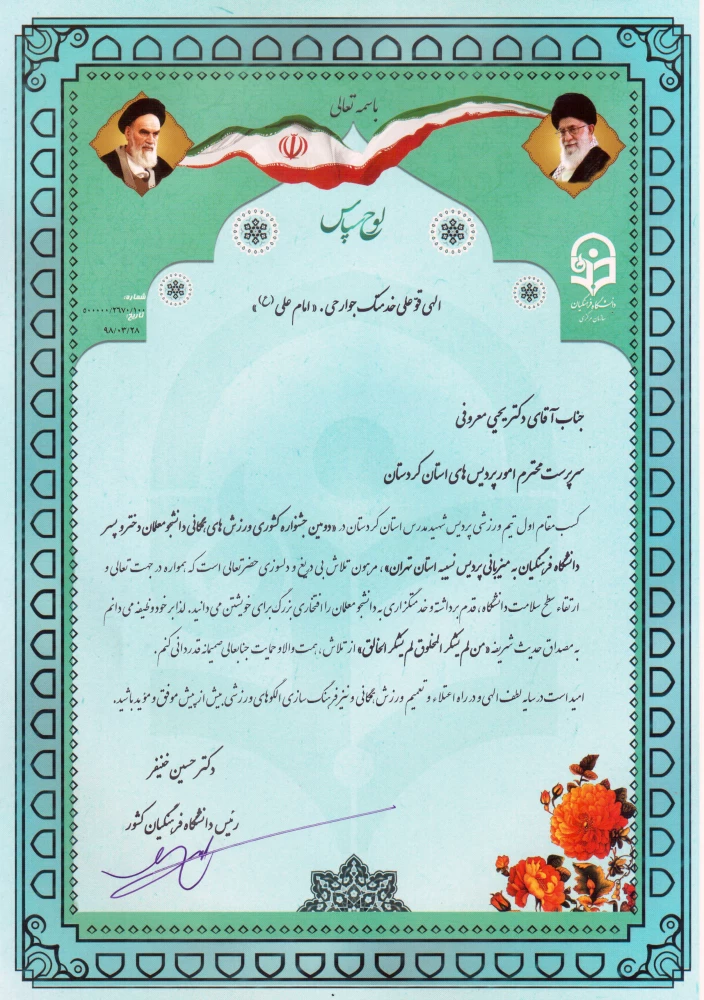 باسمه تعالی
لوح سپاس
الهی قوّ علی خدمتک جوارحی. «امام علی (ع)»
شماره:
۵۰۰۰۰۰/۲۶۷۰/۱۰۰
تاریخ:
۹۸/۰۳/۲۸
دانشگاه فرهنگیان
سازمان مرکزی
جناب آقای دکتر یحیی معروفی
سرپرست محترم امور پردیس های استان کردستان
کسب مقام اول تیم ورزشی پردیس شهید مدرس استان کردستان در «دومین جشنواره کشوری ورزش های همگانی دانشجو معلمان دختر و پسر
دانشگاه فرهنگیان به میزبانی پردیس نسیبه استان تهران»، مرهون تلاش بی دریغ و دلسوزی حضرتعالی است که همواره در جهت تعالی و
ارتقاء سطح سلامت دانشگاه، قدم برداشته و خدمتگزاری به دانشجو معلمان را افتخاری بزرگ برای خویشتن می دانید. لذا بر خود وظیفه می دانم
به مصداق حدیث شریفه «من لم یشکر المخلوق لم یشکر الخالق» از تلاش، همت والا و حمایت جنابعالی صمیمانه قدردانی کنم.
امید است در سایه لطف الهی و در راه اعتلاء و تعمیم ورزش همگانی و نیز فرهنگ سازی الگوهای ورزشی بیش از پیش موفق و مؤید باشید.
دکتر حسین خنیفر
رئیس دانشگاه فرهنگیان کشور